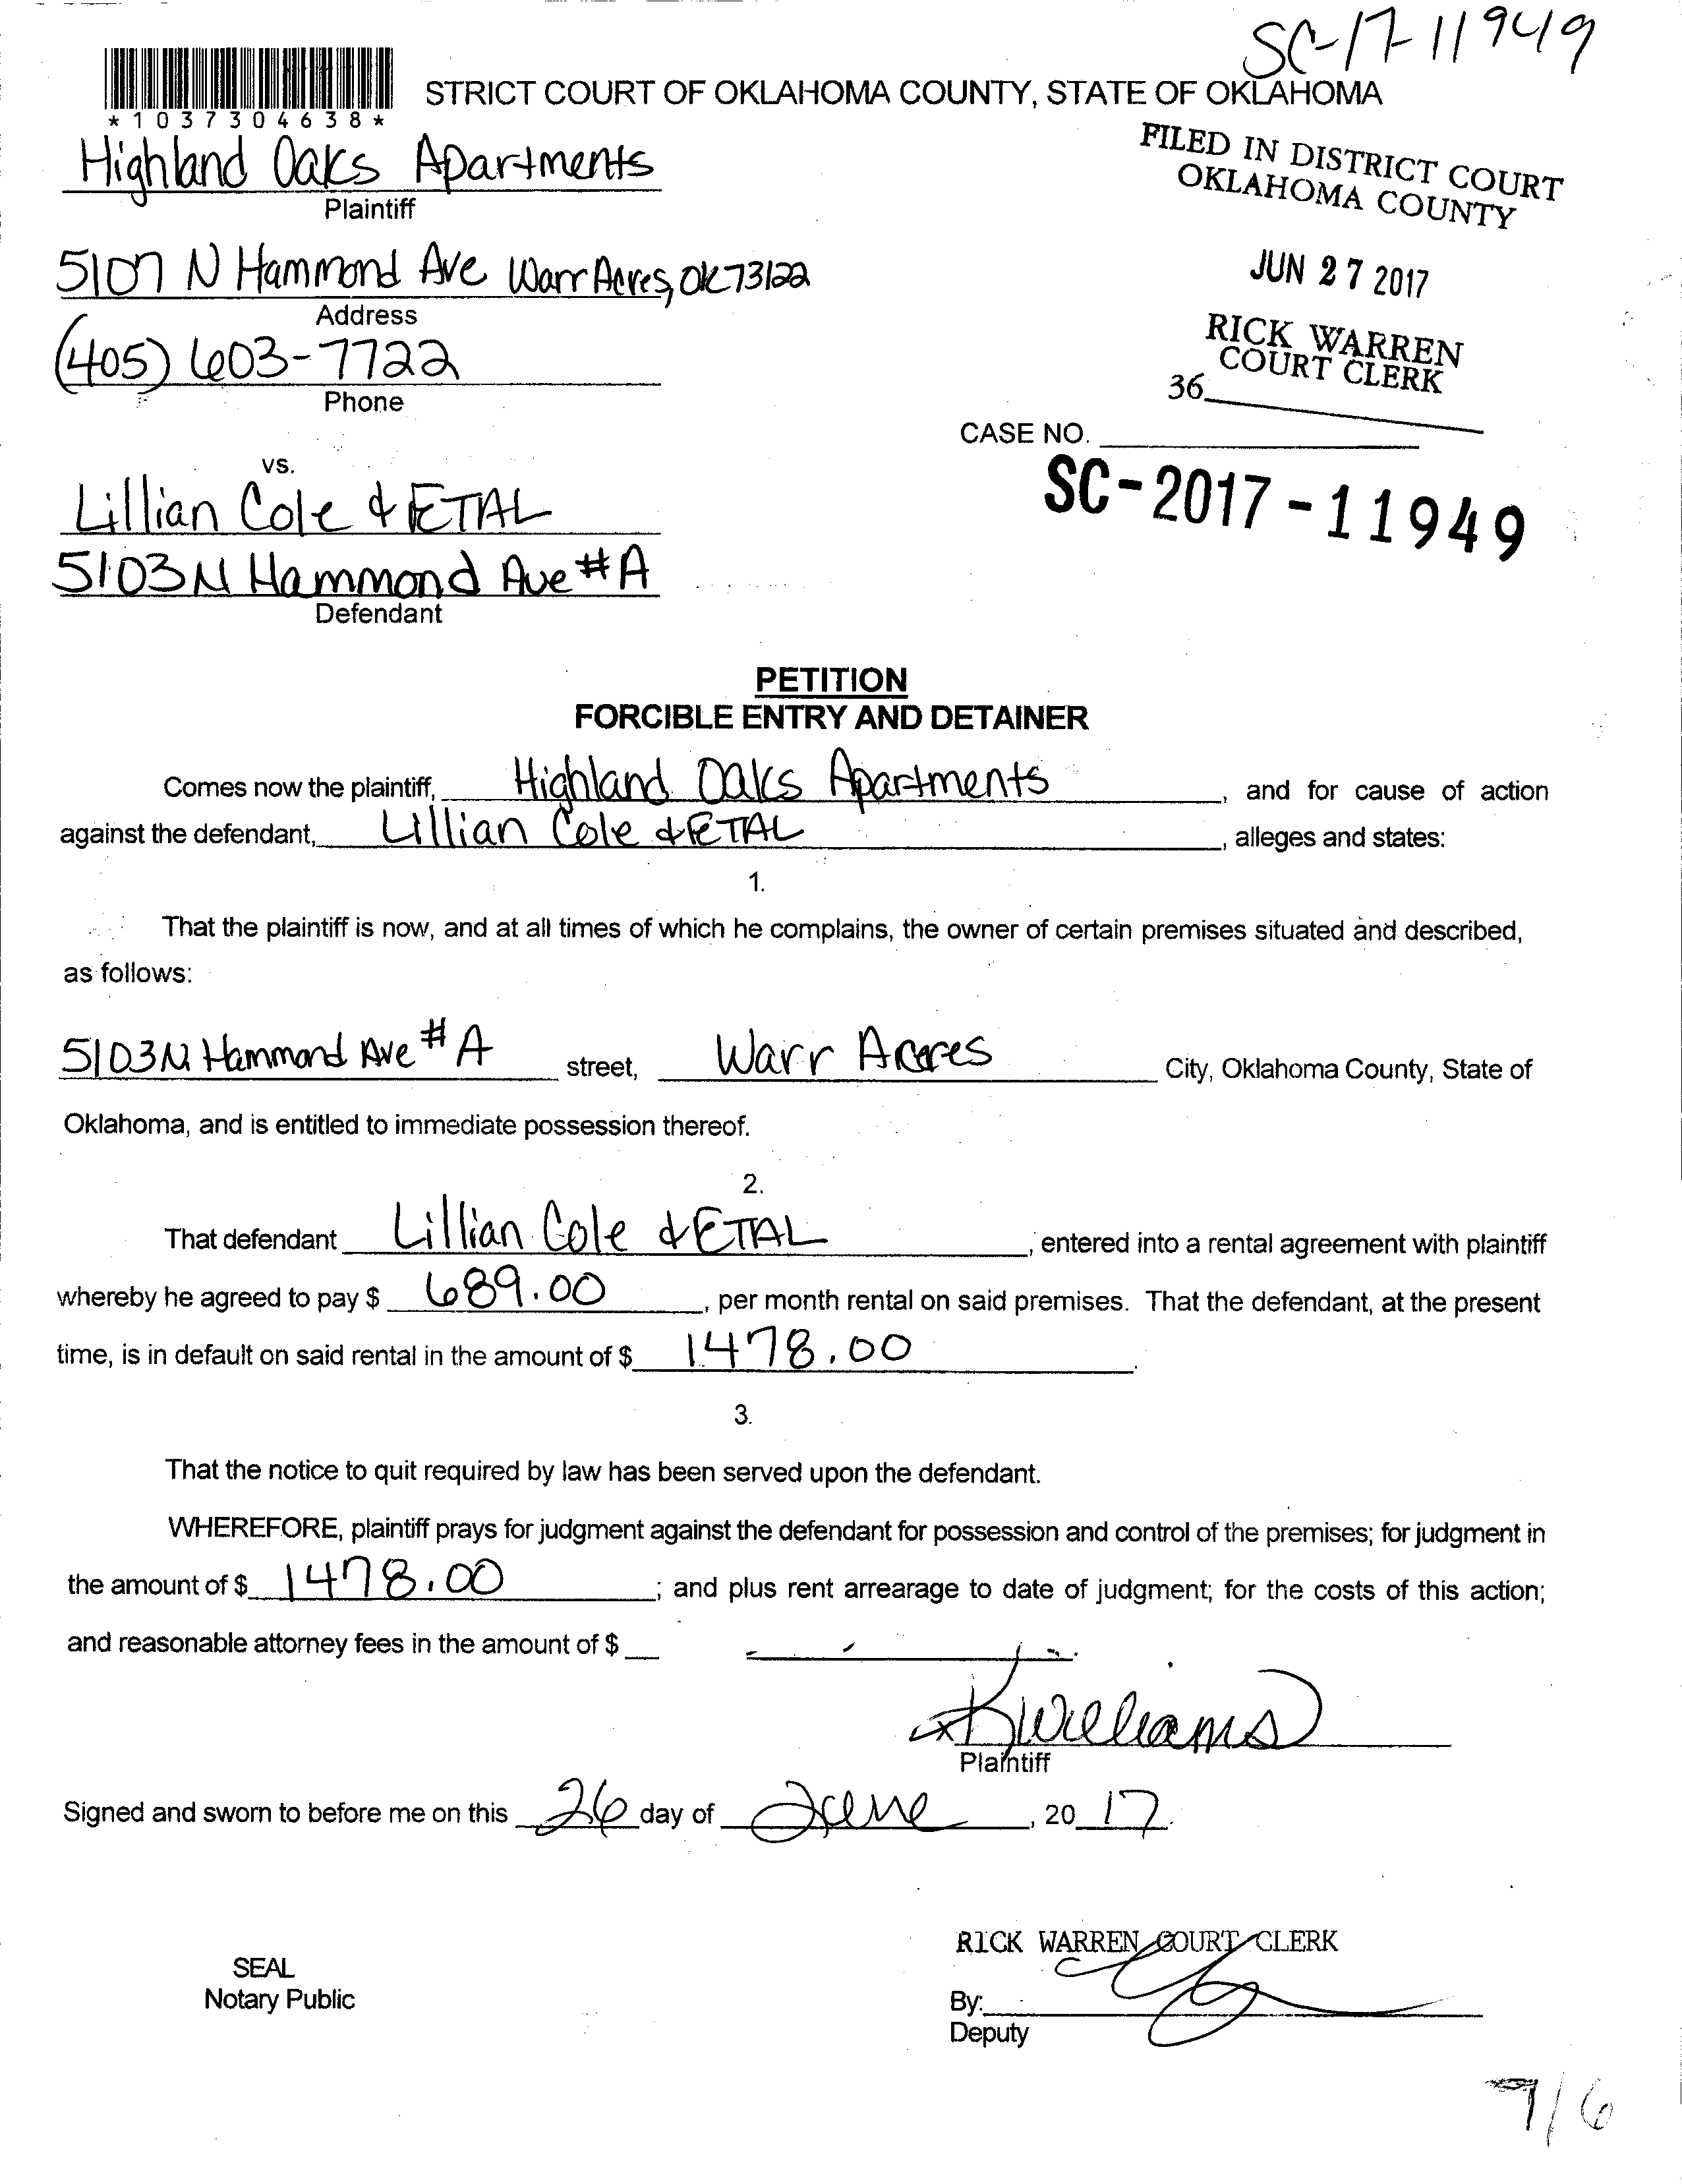 SC-17-11949
STRICT COURT OF OKLAHOMA COUNTY, STATE OF OKLAHOMA
*1037304638*
Highland Oaks Apartments
Plaintiff
FILED IN DISTRICT COURT
OKLAHOMA COUNTY
5107 N Hammond Ave Warr Acres, OK 73122
Address
JUN 27 2017
(405) 603-7722
Phone
RICK WARREN
COURT CLERK
36
CASE NO.
SC-2017-11949
vs.
Lillian Cole & ETAL
5103 N Hammond Ave #A
Defendant
PETITION
FORCIBLE ENTRY AND DETAINER
Comes now the plaintiff, Highland Oaks Apartments, and for cause of action
against the defendant, Lillian Cole & ETAL, alleges and states:
1.
That the plaintiff is now, and at all times of which he complains, the owner of certain premises situated and described,
as follows:
5103 N Hammond Ave #A street, Warr Acres City, Oklahoma County, State of
Oklahoma, and is entitled to immediate possession thereof.
2.
That defendant Lillian Cole & ETAL, entered into a rental agreement with plaintiff
whereby he agreed to pay $ 689.00, per month rental on said premises. That the defendant, at the present
time, is in default on said rental in the amount of $ 1478.00.
3.
That the notice to quit required by law has been served upon the defendant.
WHEREFORE, plaintiff prays for judgment against the defendant for possession and control of the premises; for judgment in
the amount of $ 1478.00; and plus rent arrearage to date of judgment; for the costs of this action;
and reasonable attorney fees in the amount of $
x KWilliams
Plaintiff
Signed and sworn to before me on this 26 day of June, 2017.
RICK WARREN COURT CLERK
SEAL
Notary Public
By:
Deputy
9/6